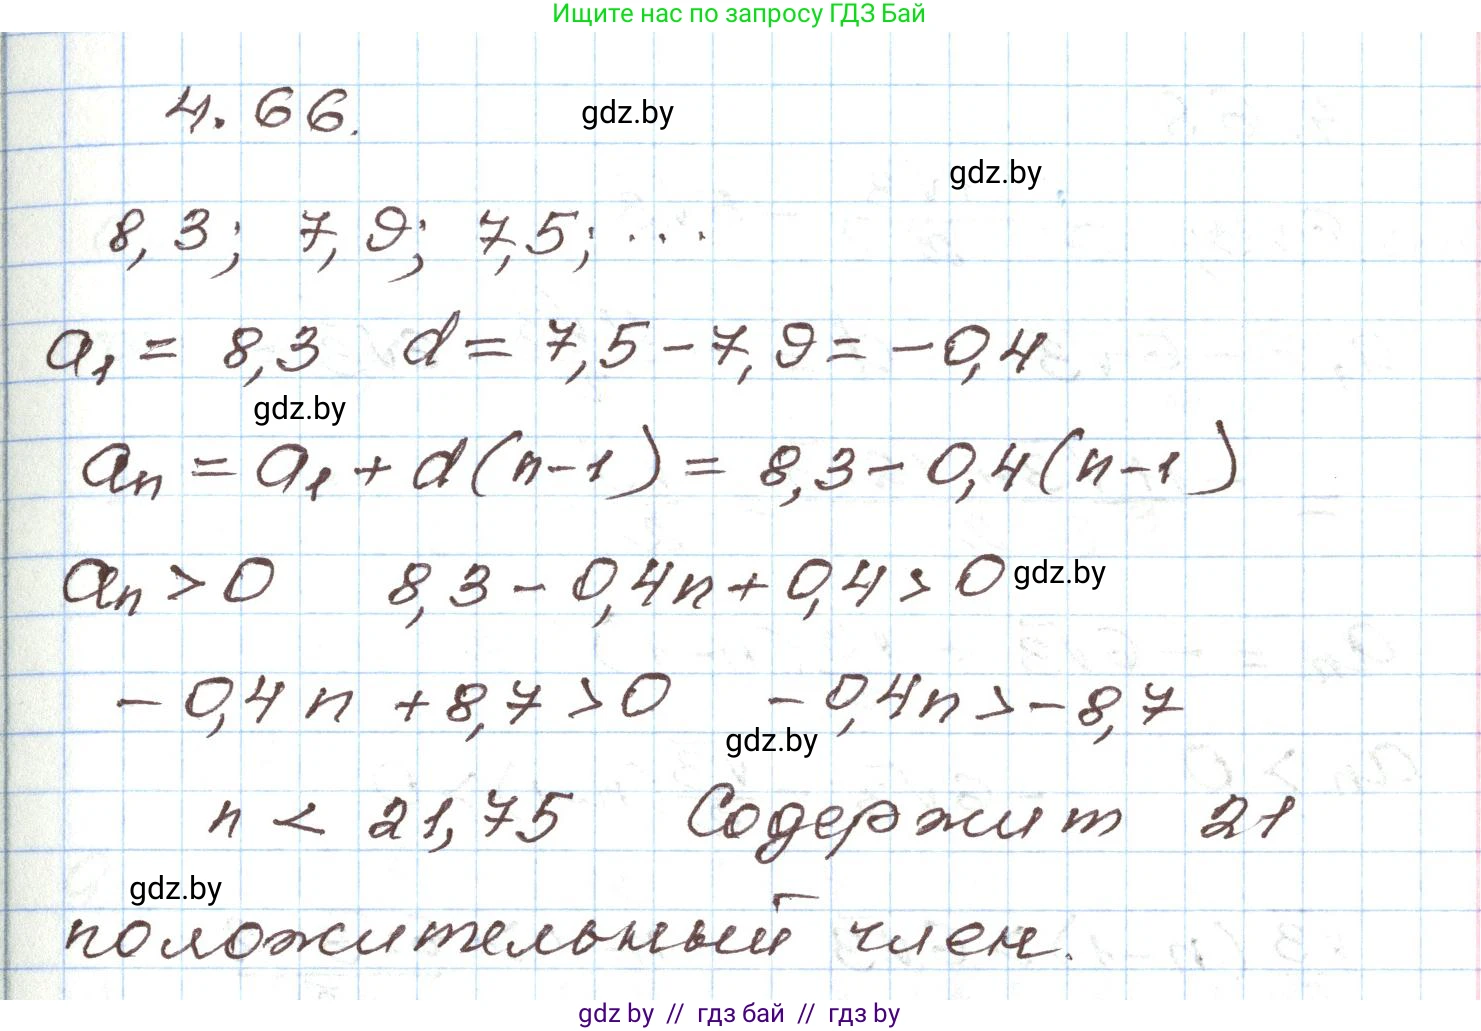 Ищите нас по запросу ГДЗ Бай
4.66.
gdz.by
gdz.by
8,3; 7,9; 7,5; ...
a₁ = 8,3 d = 7,5 - 7,9 = -0,4
gdz.by
aₙ = a₁ + d(n-1) = 8,3 - 0,4(n-1)
aₙ > 0 8,3 - 0,4n + 0,4 > 0 gdz.by
-0,4n + 8,7 > 0 -0,4n > -8,7
gdz.by
n < 21,75 Содержит 21
gdz.by
положительный член.
gdz.by // гдз бай // гдз by